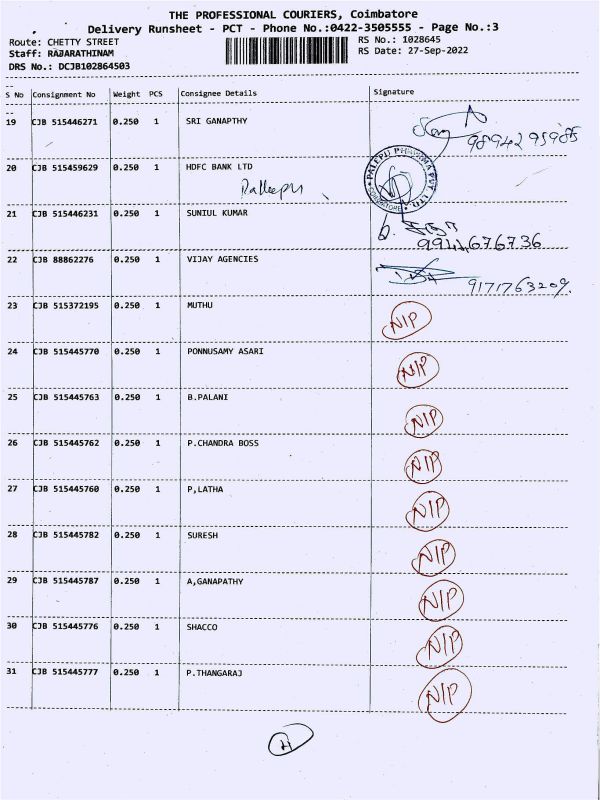 THE PROFESSIONAL COURIERS, Coimbatore
Delivery Runsheet - PCT - Phone No.:0422-3505555 - Page No.:3
Route: CHETTY STREET
RS No.: 1028645
Staff: RAJARATHINAM
RS Date: 27-Sep-2022
DRS No.: DCJB102864503
S No Consignment No Weight PCS Consignee Details Signature
19 CJB 515446271 0.250 1 SRI GANAPTHY
98942 95985
20 CJB 515459629 0.250 1 HDFC BANK LTD
PALEPU PHARMA PVT. LTD.
COIMBATORE
21 CJB 515446231 0.250 1 SUNIUL KUMAR
22 CJB 88862276 0.250 1 VIJAY AGENCIES
9171763209
23 CJB 515372195 0.250 1 MUTHU NIP
24 CJB 515445770 0.250 1 PONNUSAMY ASARI NIP
25 CJB 515445763 0.250 1 B.PALANI NIP
26 CJB 515445762 0.250 1 P.CHANDRA BOSS NIP
27 CJB 515445760 0.250 1 P,LATHA NIP
28 CJB 515445782 0.250 1 SURESH NIP
29 CJB 515445787 0.250 1 A,GANAPATHY NIP
30 CJB 515445776 0.250 1 SHACCO NIP
31 CJB 515445777 0.250 1 P.THANGARAJ NIP